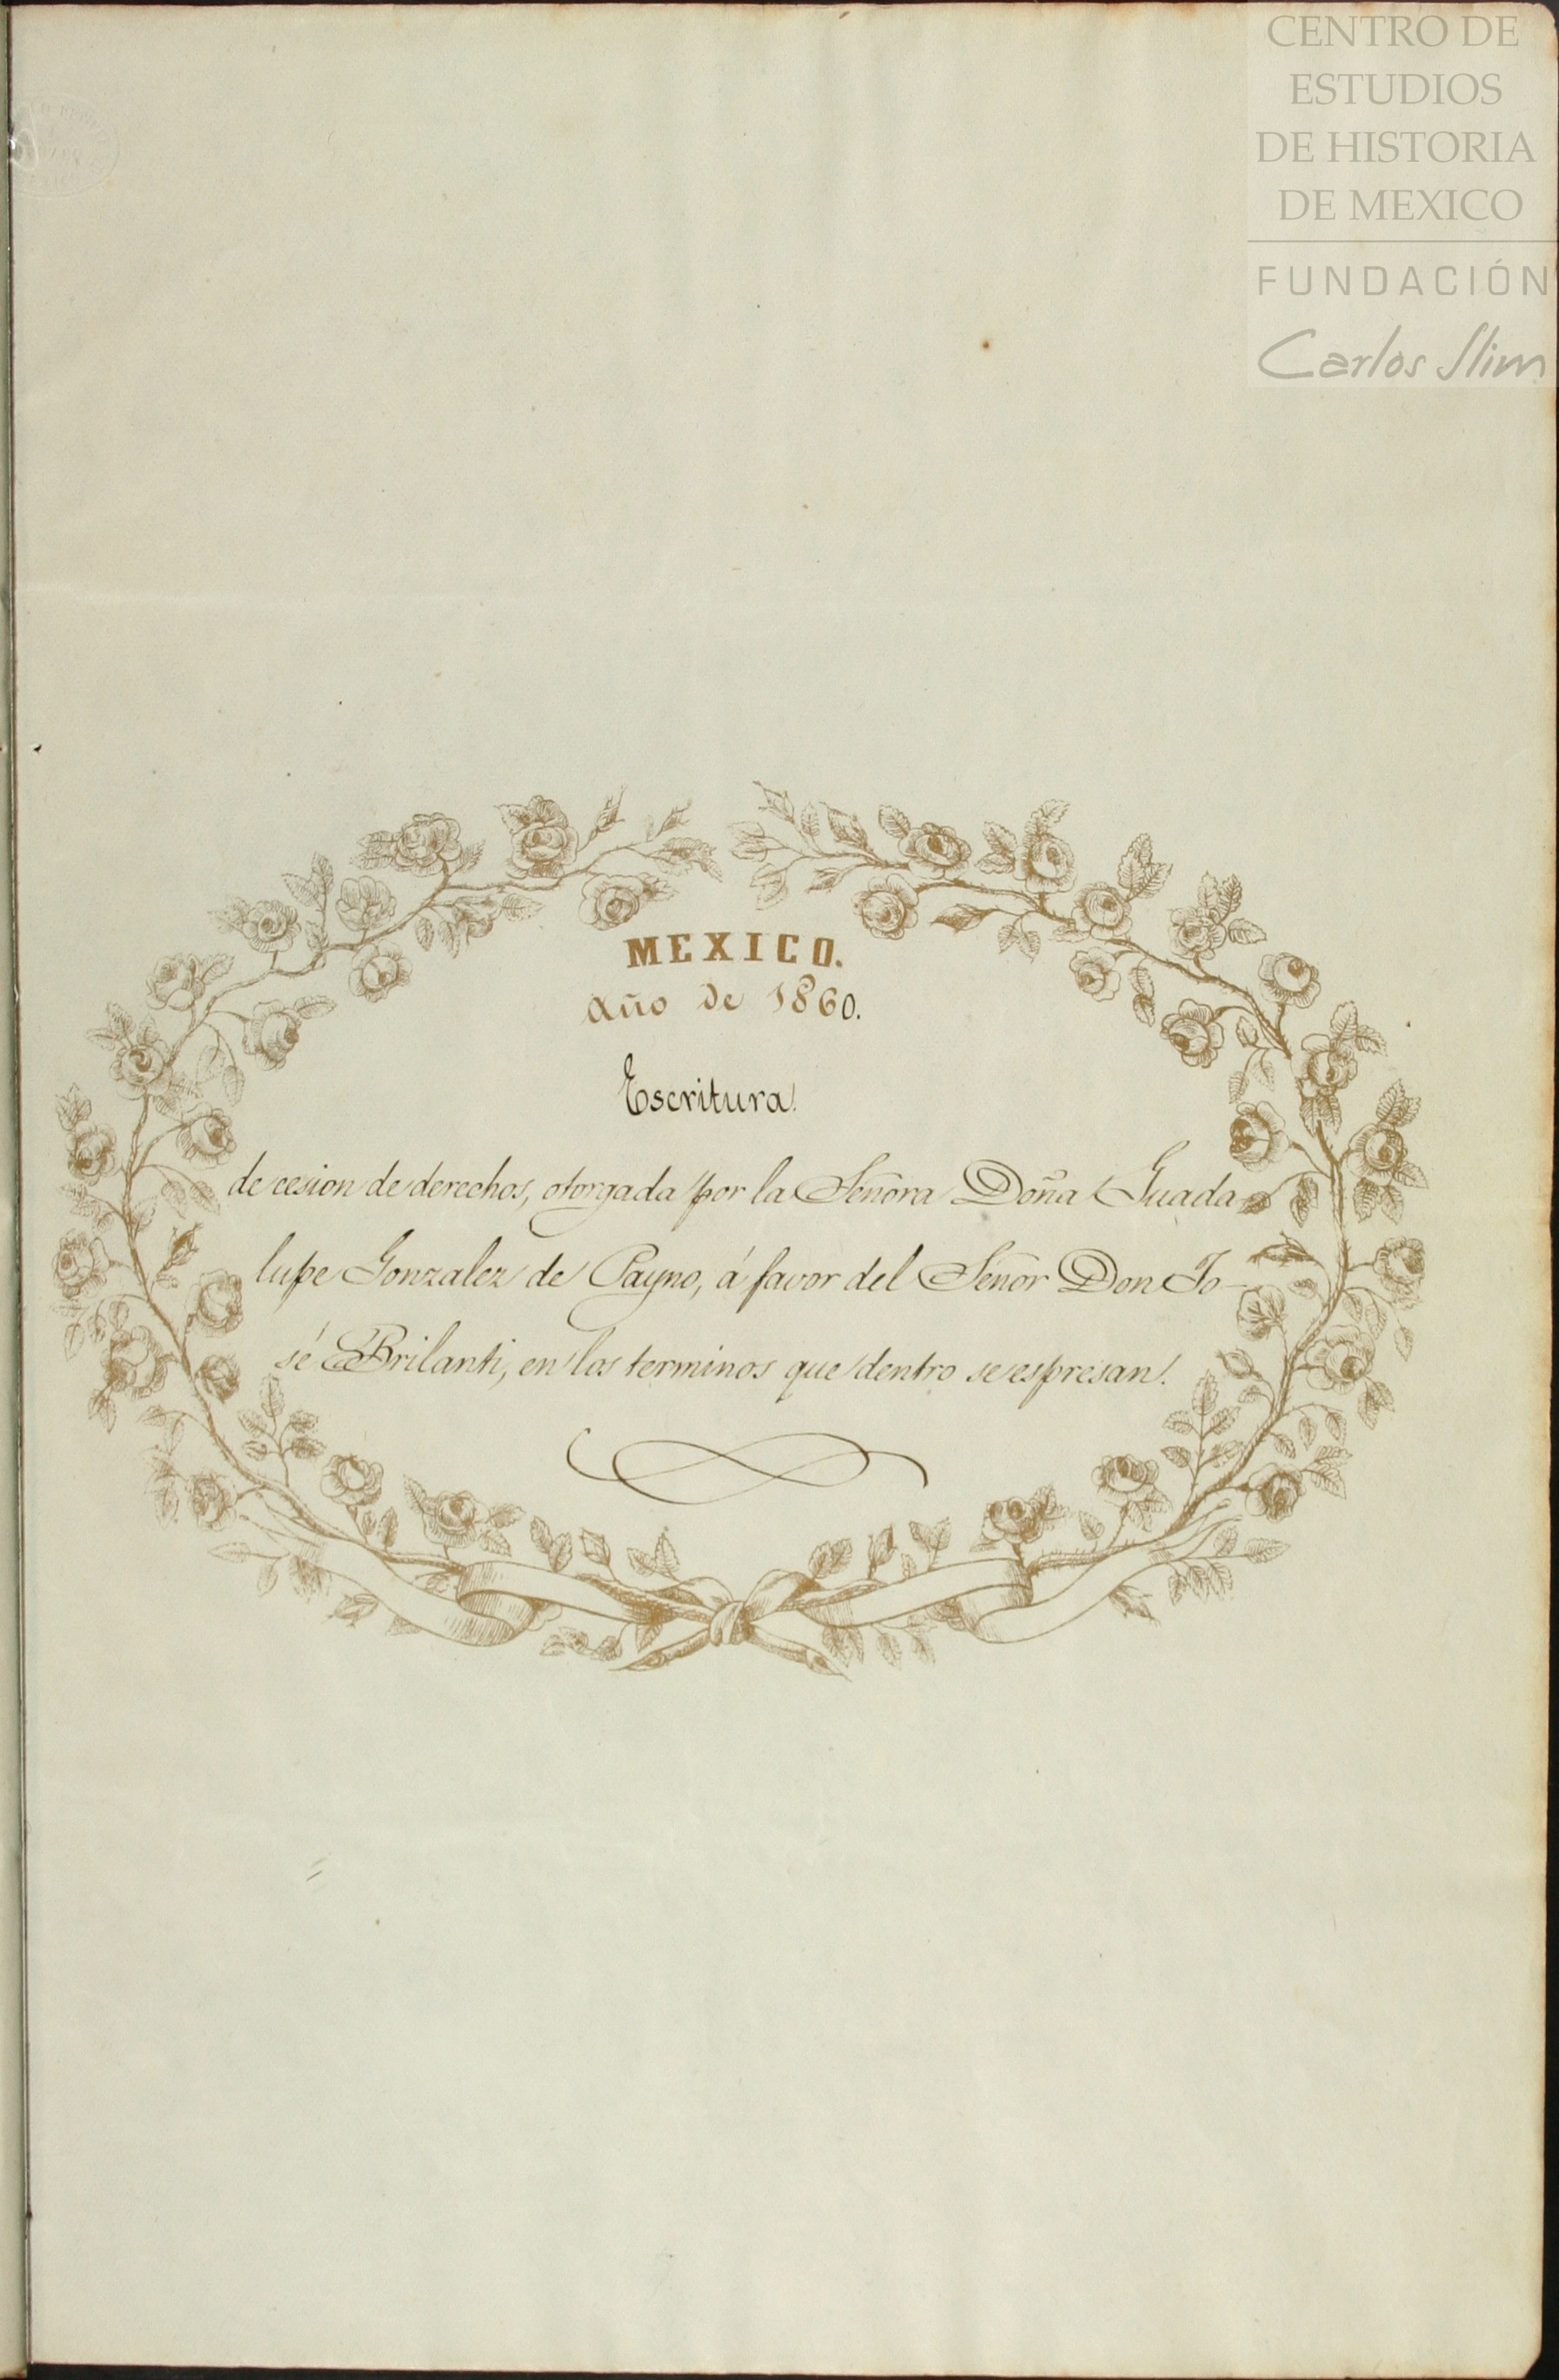 CENTRO DE
ESTUDIOS
DE HISTORIA
DE MEXICO
FUNDACIÓN
Carlos Slim
MEXICO.
Año de 1860.
Escritura.
de cesion de derechos, otorgada por la Señora Doña Guada
lupe Gonzalez de Payno, á favor del Señor Don Jo-
sé Brilanti, en los terminos que dentro se espresan.